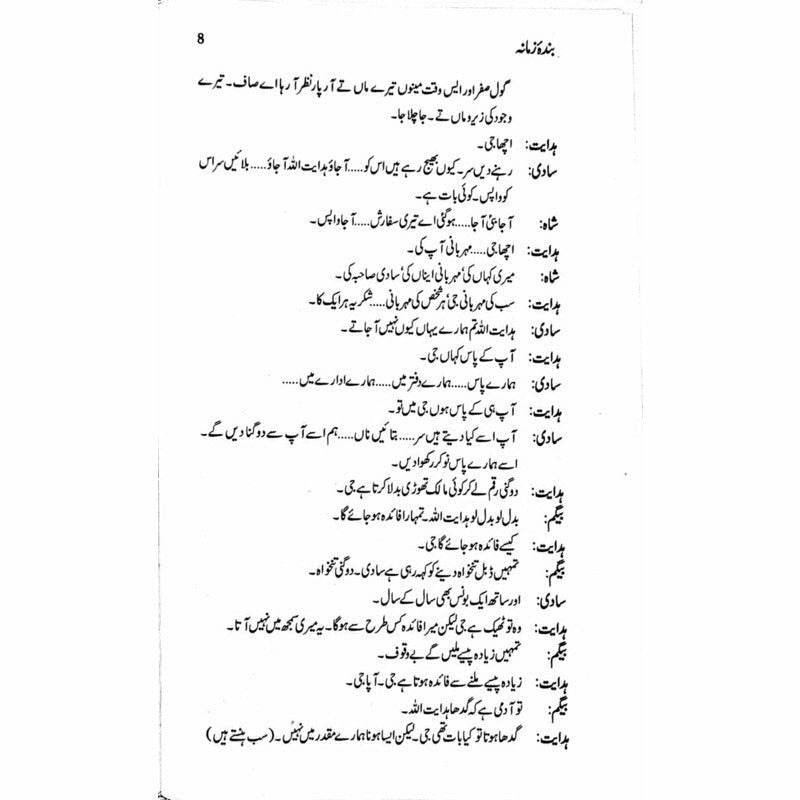 بندۂ زمانہ
8
گول صفر اور ایس وقت مینوں تیرے ماں تے آر پار نظر آ رہا اے صاف۔ تیرے
وجود کی زیرو ماں تے۔ جا چلا جا۔
ہدایت: اچھا جی۔
سادی: رہنے دیں سر۔ کیوں بھیج رہے ہیں اس کو.....آ جاؤ ہدایت اللہ آ جاؤ.....بلائیں سر اس
کو واپس۔ کوئی بات ہے۔
شاہ: آ جا بئی آ جا.....ہوگئی اے تیری سفارش.....آ جا واپس۔
ہدایت: اچھا جی.....مہربانی آپ کی۔
شاہ: میری کہاں کی‘ مہربانی ایناں کی‘ سادی صاحبہ کی۔
ہدایت: سب کی مہربانی جی‘ ہر شخص کی مہربانی.....شکریہ ہر ایک کا۔
سادی: ہدایت اللہ تم ہمارے یہاں کیوں نہیں آ جاتے۔
ہدایت: آپ کے پاس کہاں جی۔
سادی: ہمارے پاس.....ہمارے دفتر میں.....ہمارے ادارے میں.....
ہدایت: آپ ہی کے پاس ہوں جی میں تو۔
سادی: آپ اسے کیا دیتے ہیں سر.....بتائیں ناں.....ہم اسے آپ سے دو گنا دیں گے۔
اسے ہمارے پاس نوکر رکھوا دیں۔
ہدایت: دوگنی رقم لے کر کوئی مالک تھوڑی بدلا کرتا ہے جی۔
بیگم: بدل لو بدل لو ہدایت اللہ۔ تمہارا فائدہ ہو جائے گا۔
ہدایت: کیسے فائدہ ہو جائے گا جی۔
بیگم: تمہیں ڈبل تنخواہ دینے کو کہہ رہی ہے سادی۔ دوگنی تنخواہ۔
سادی: اور ساتھ ایک بونس بھی سال کے سال۔
ہدایت: وہ تو ٹھیک ہے جی لیکن میرا فائدہ کس طرح سے ہوگا۔ یہ میری سمجھ میں نہیں آتا۔
بیگم: تمہیں زیادہ پیسے ملیں گے بے وقوف۔
ہدایت: زیادہ پیسے ملنے سے فائدہ ہوتا ہے جی۔ آپا جی۔
بیگم: تو آدمی ہے کہ گدھا ہدایت اللہ۔
ہدایت: گدھا ہوتا تو کیا بات تھی جی۔ لیکن ایسا ہونا ہمارے مقدر میں نہیں۔ (سب ہنستے ہیں)